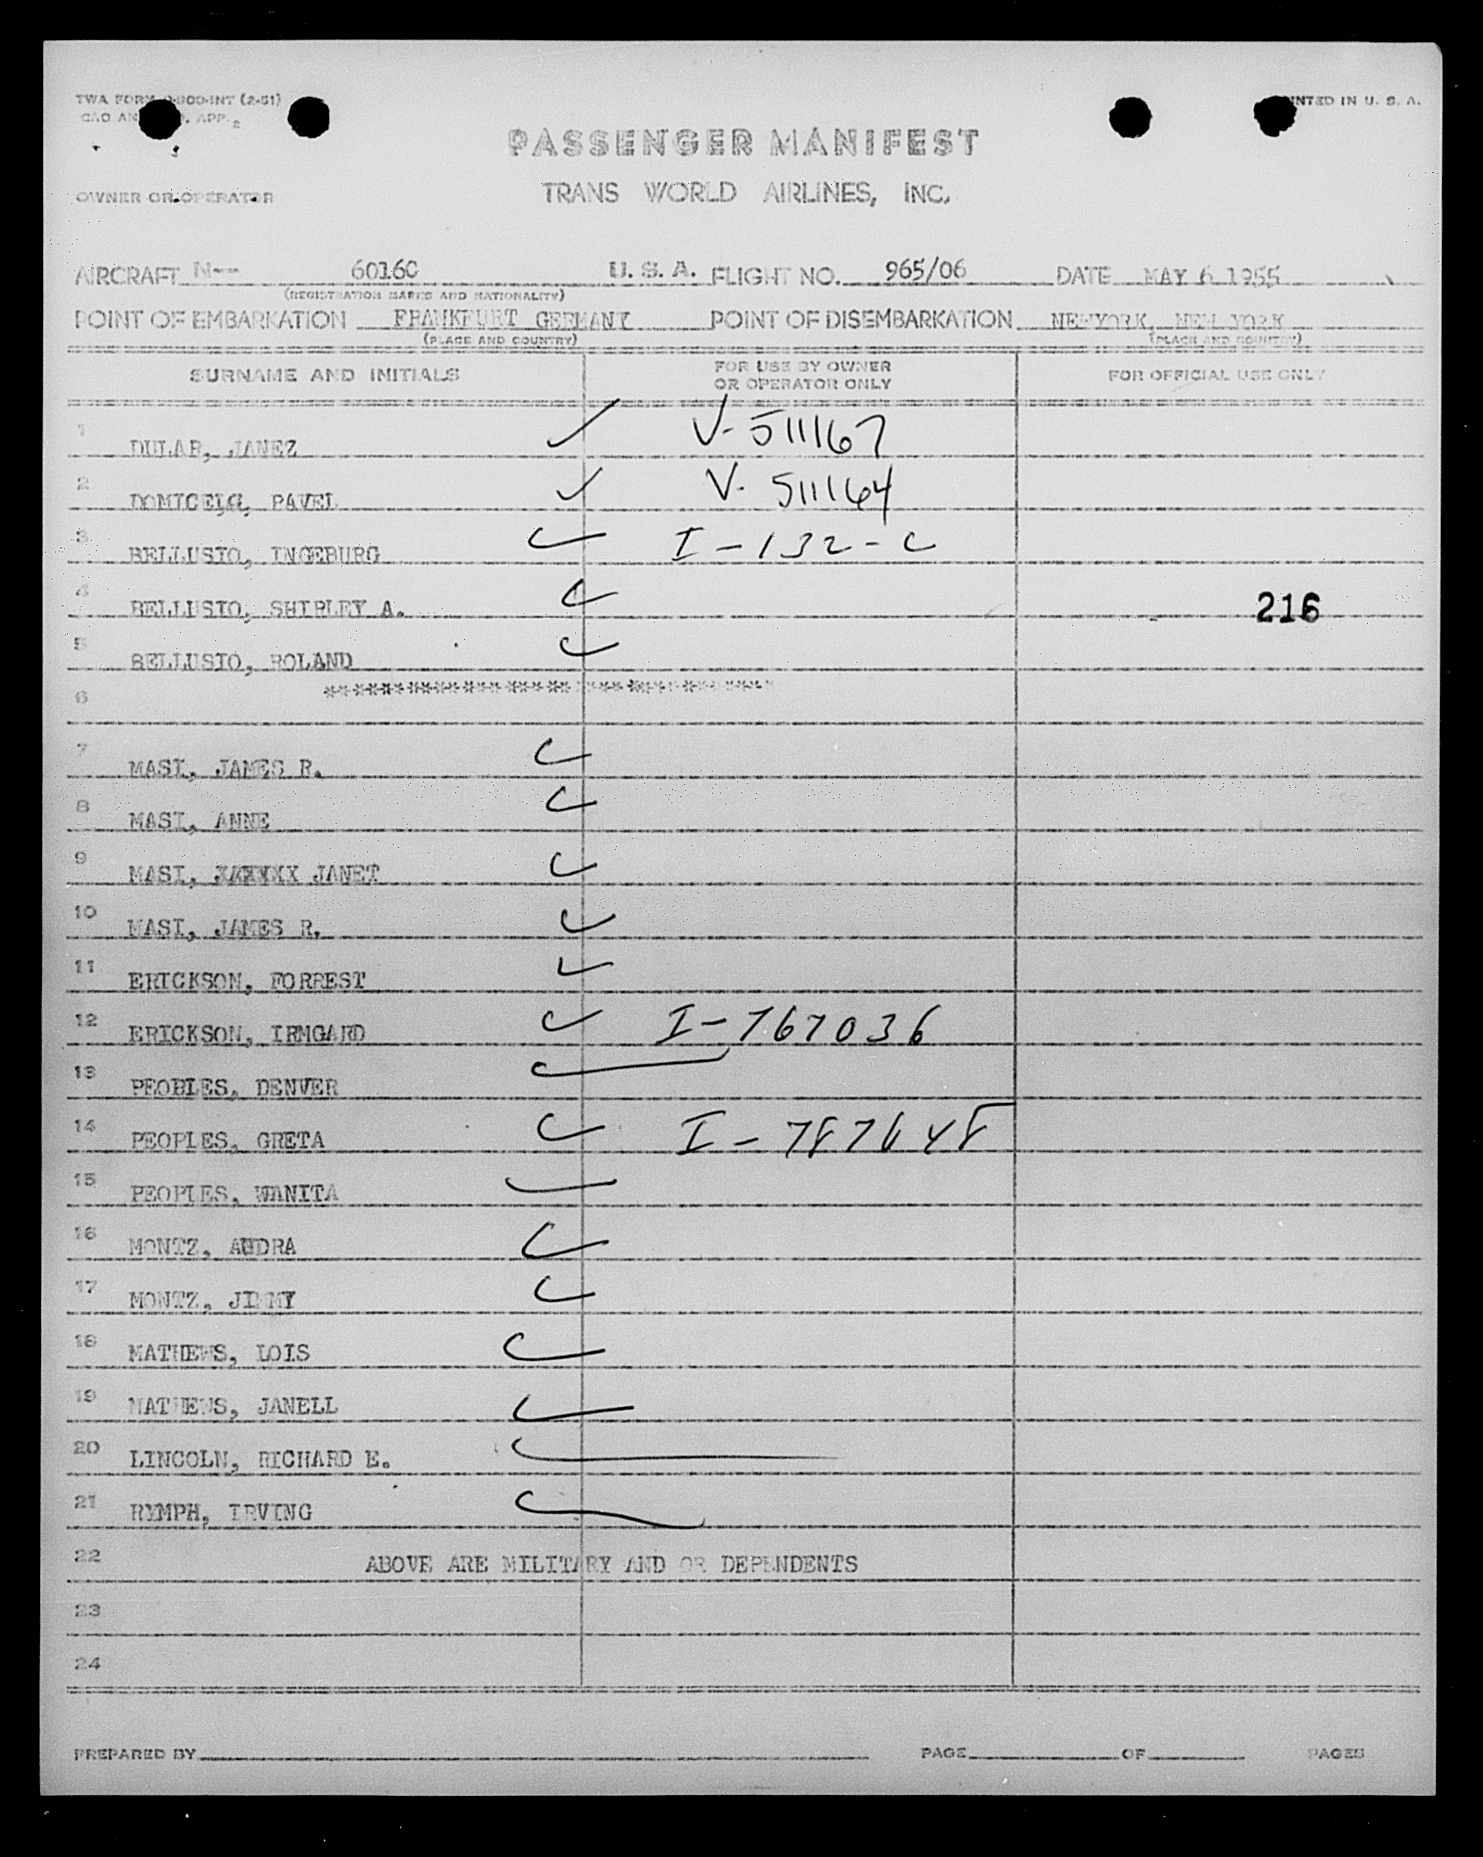 TWA FORM -800-INT (2-51)
PRINTED IN U. S. A.
CAO AN APP. 2
PASSENGER MANIFEST
OWNER OR OPERATOR
TRANS WORLD AIRLINES, INC.
AIRCRAFT N-- 6016C U. S. A. FLIGHT NO. 965/06 DATE MAY 6 1955
(REGISTRATION MARKS AND NATIONALITY)
POINT OF EMBARKATION FRANKFURT GERMANY POINT OF DISEMBARKATION NEWYORK, NEW YORK
(PLACE AND COUNTRY) (PLACE AND COUNTRY)
SURNAME AND INITIALS FOR USE BY OWNER OR OPERATOR ONLY FOR OFFICIAL USE ONLY
1 DULAR, JANEZ ✓ V-511167
2 PAVEL ✓ V-511164
3 BELLUSIO, INGEBURG ✓ I-132-C
4 BELLUSIO, SHIRLEY A. ✓ 216
5 BELLUSIO, ROLAND ✓
6 **********************************
7 MASI, JAMES R. ✓
8 MASI, ANNE ✓
9 MASI, XXXXXX JANET ✓
10 MASI, JAMES R. ✓
11 ERICKSON, FORREST ✓
12 ERICKSON, IRMGARD ✓ I-767036
13 PEOBLES, DENVER ✓
14 PEOPLES, GRETA ✓ I-787648
15 PEOPLES, WANITA ✓
16 MONTZ, AUDRA ✓
17 MONTZ, JIMMY ✓
18 MATHEWS, LOIS ✓
19 MATHEWS, JANELL ✓
20 LINCOLN, RICHARD E. ✓
21 RYMPH, IRVING ✓
22 ABOVE ARE MILITARY AND OR DEPENDENTS
23
24
PREPARED BY PAGE OF PAGES